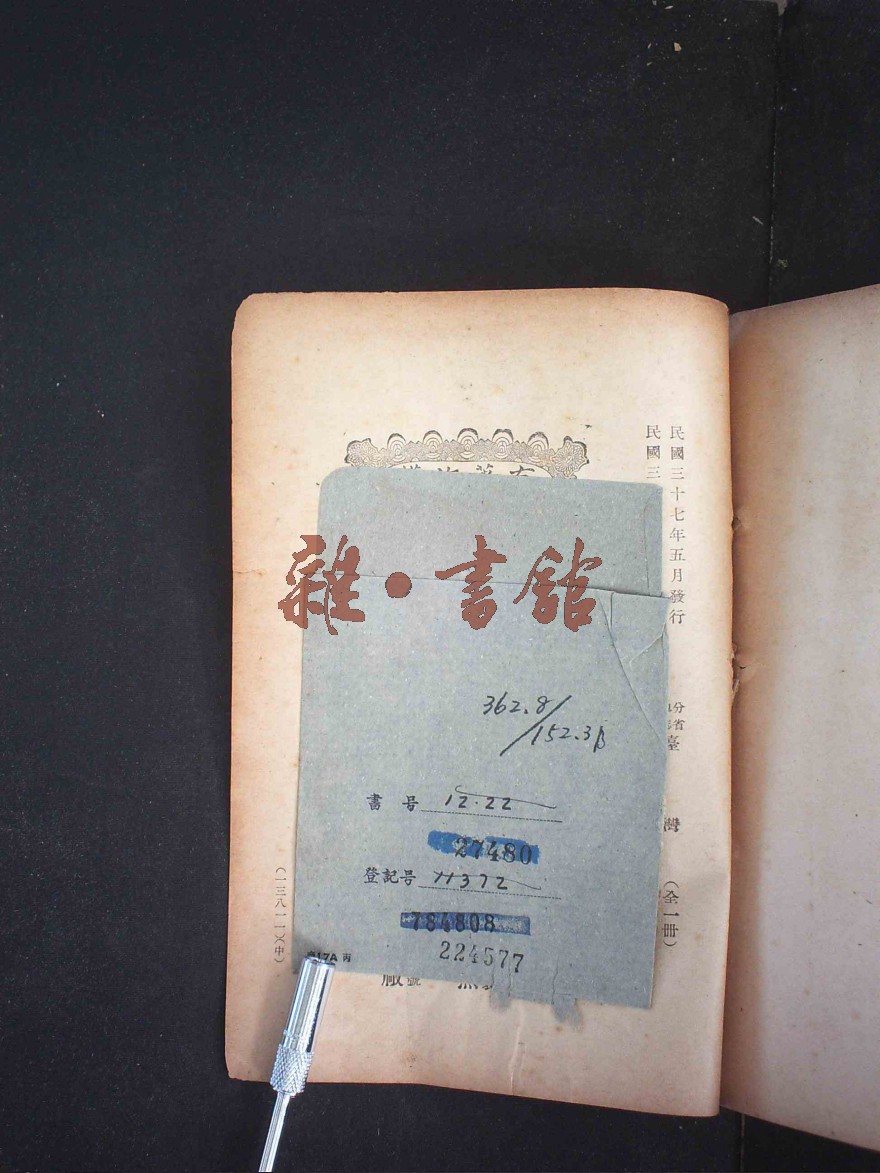 民國三十七年五月發行
民國三
分
省
臺
灣
(全一冊)
雜·書館
362.8/152.3β
書号 12.22
27480
登記号 11372
784808
224577
17A 丙
(一三八一一)(中)